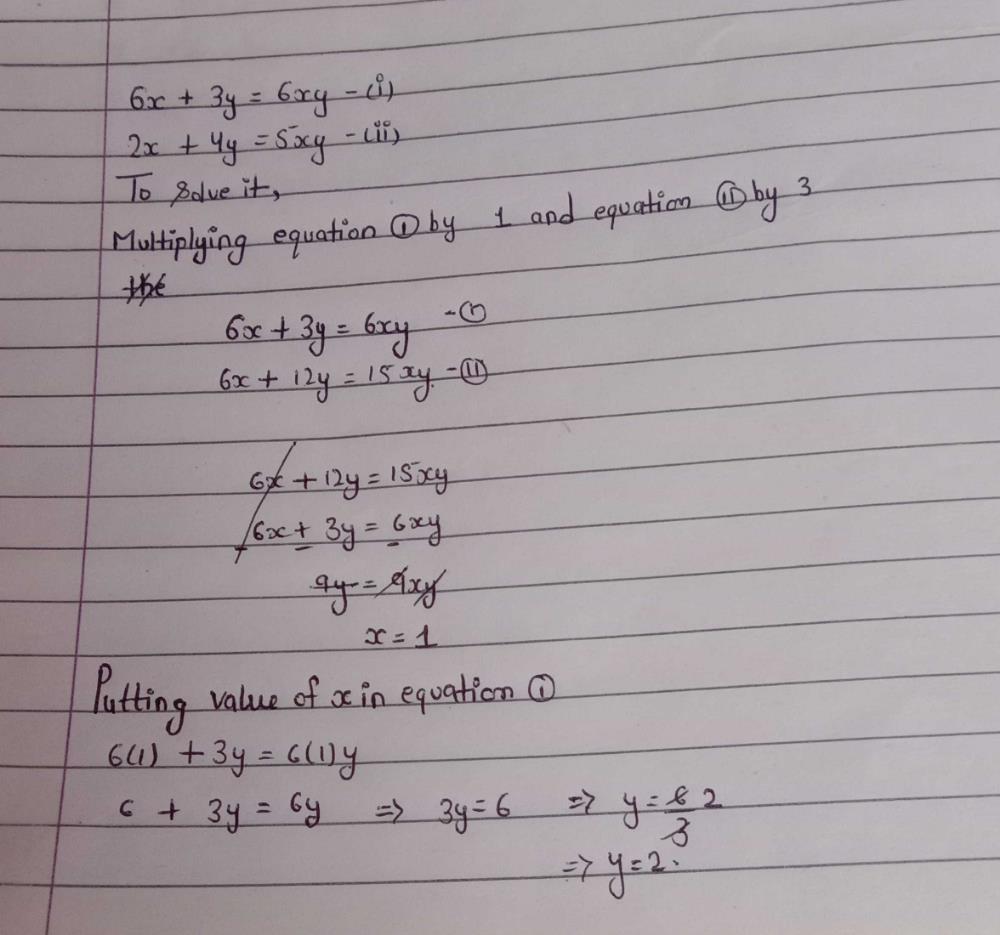 6x + 3y = 6xy - (i)
2x + 4y = 5xy - (ii)
To solve it,
Multiplying equation ① by 1 and equation ⑪ by 3
the
6x + 3y = 6xy - ①
6x + 12y = 15xy - ⑪
6x + 12y = 15xy
6x + 3y = 6xy
- - -
9y = 9xy
x = 1
Putting value of x in equation ①
6(1) + 3y = 6(1)y
6 + 3y = 6y ⇒ 3y = 6 ⇒ y = 6/3 2
⇒ y = 2.